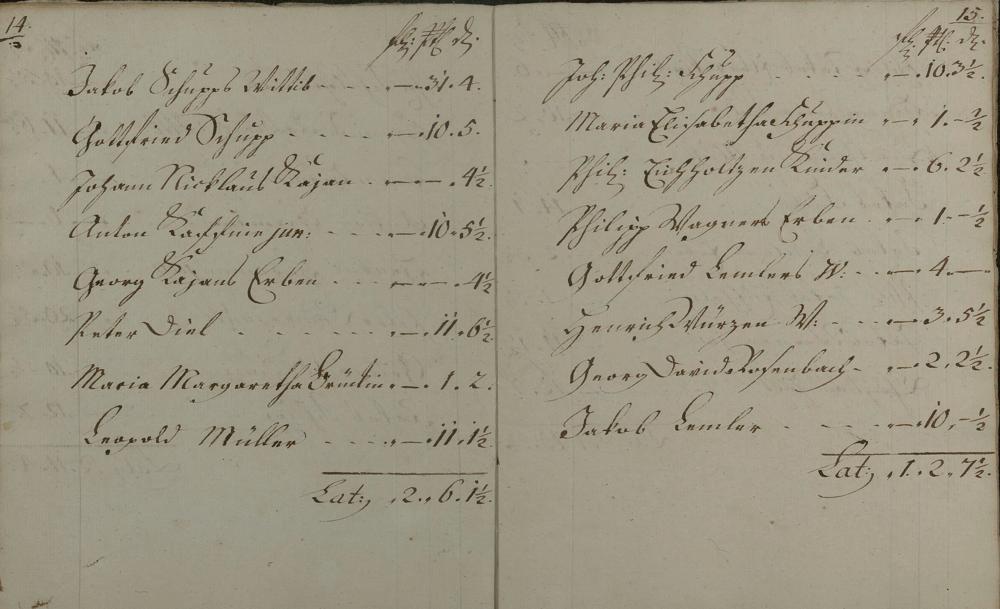 14.
Jakob Schupps Wittib - - - - 31. 4.
Gottfried Schupp - - - - - 10. 5.
Johann Nicklaus Kajan - - - 4½
Anton - - - 10. 5½.
Georg Kajans Erben - - - - 4½
Peter Diel - - - - - - 11. 6½
Maria Margaretha - 1. 2.
Leopold Müller - - - - 11. 1½
Lat: 2. 6. 1½.
15.
Joh: Phil: Schupp - - - - 10. 3½.
Maria Elisabetha Schuppin - 1. - ½
Phil: Eichholtzen Kinder - 6. 2½
Philipp Wagners Erben - - 1. - ½
Gottfried Lemlers W: - - - 4. -
Henrich Würzen W: - - - 3. 5½
Georg David Rosenbach - - 2. 2½.
Jakob Lemler - - - - 10. - ½
Lat: 1. 2. 7½.